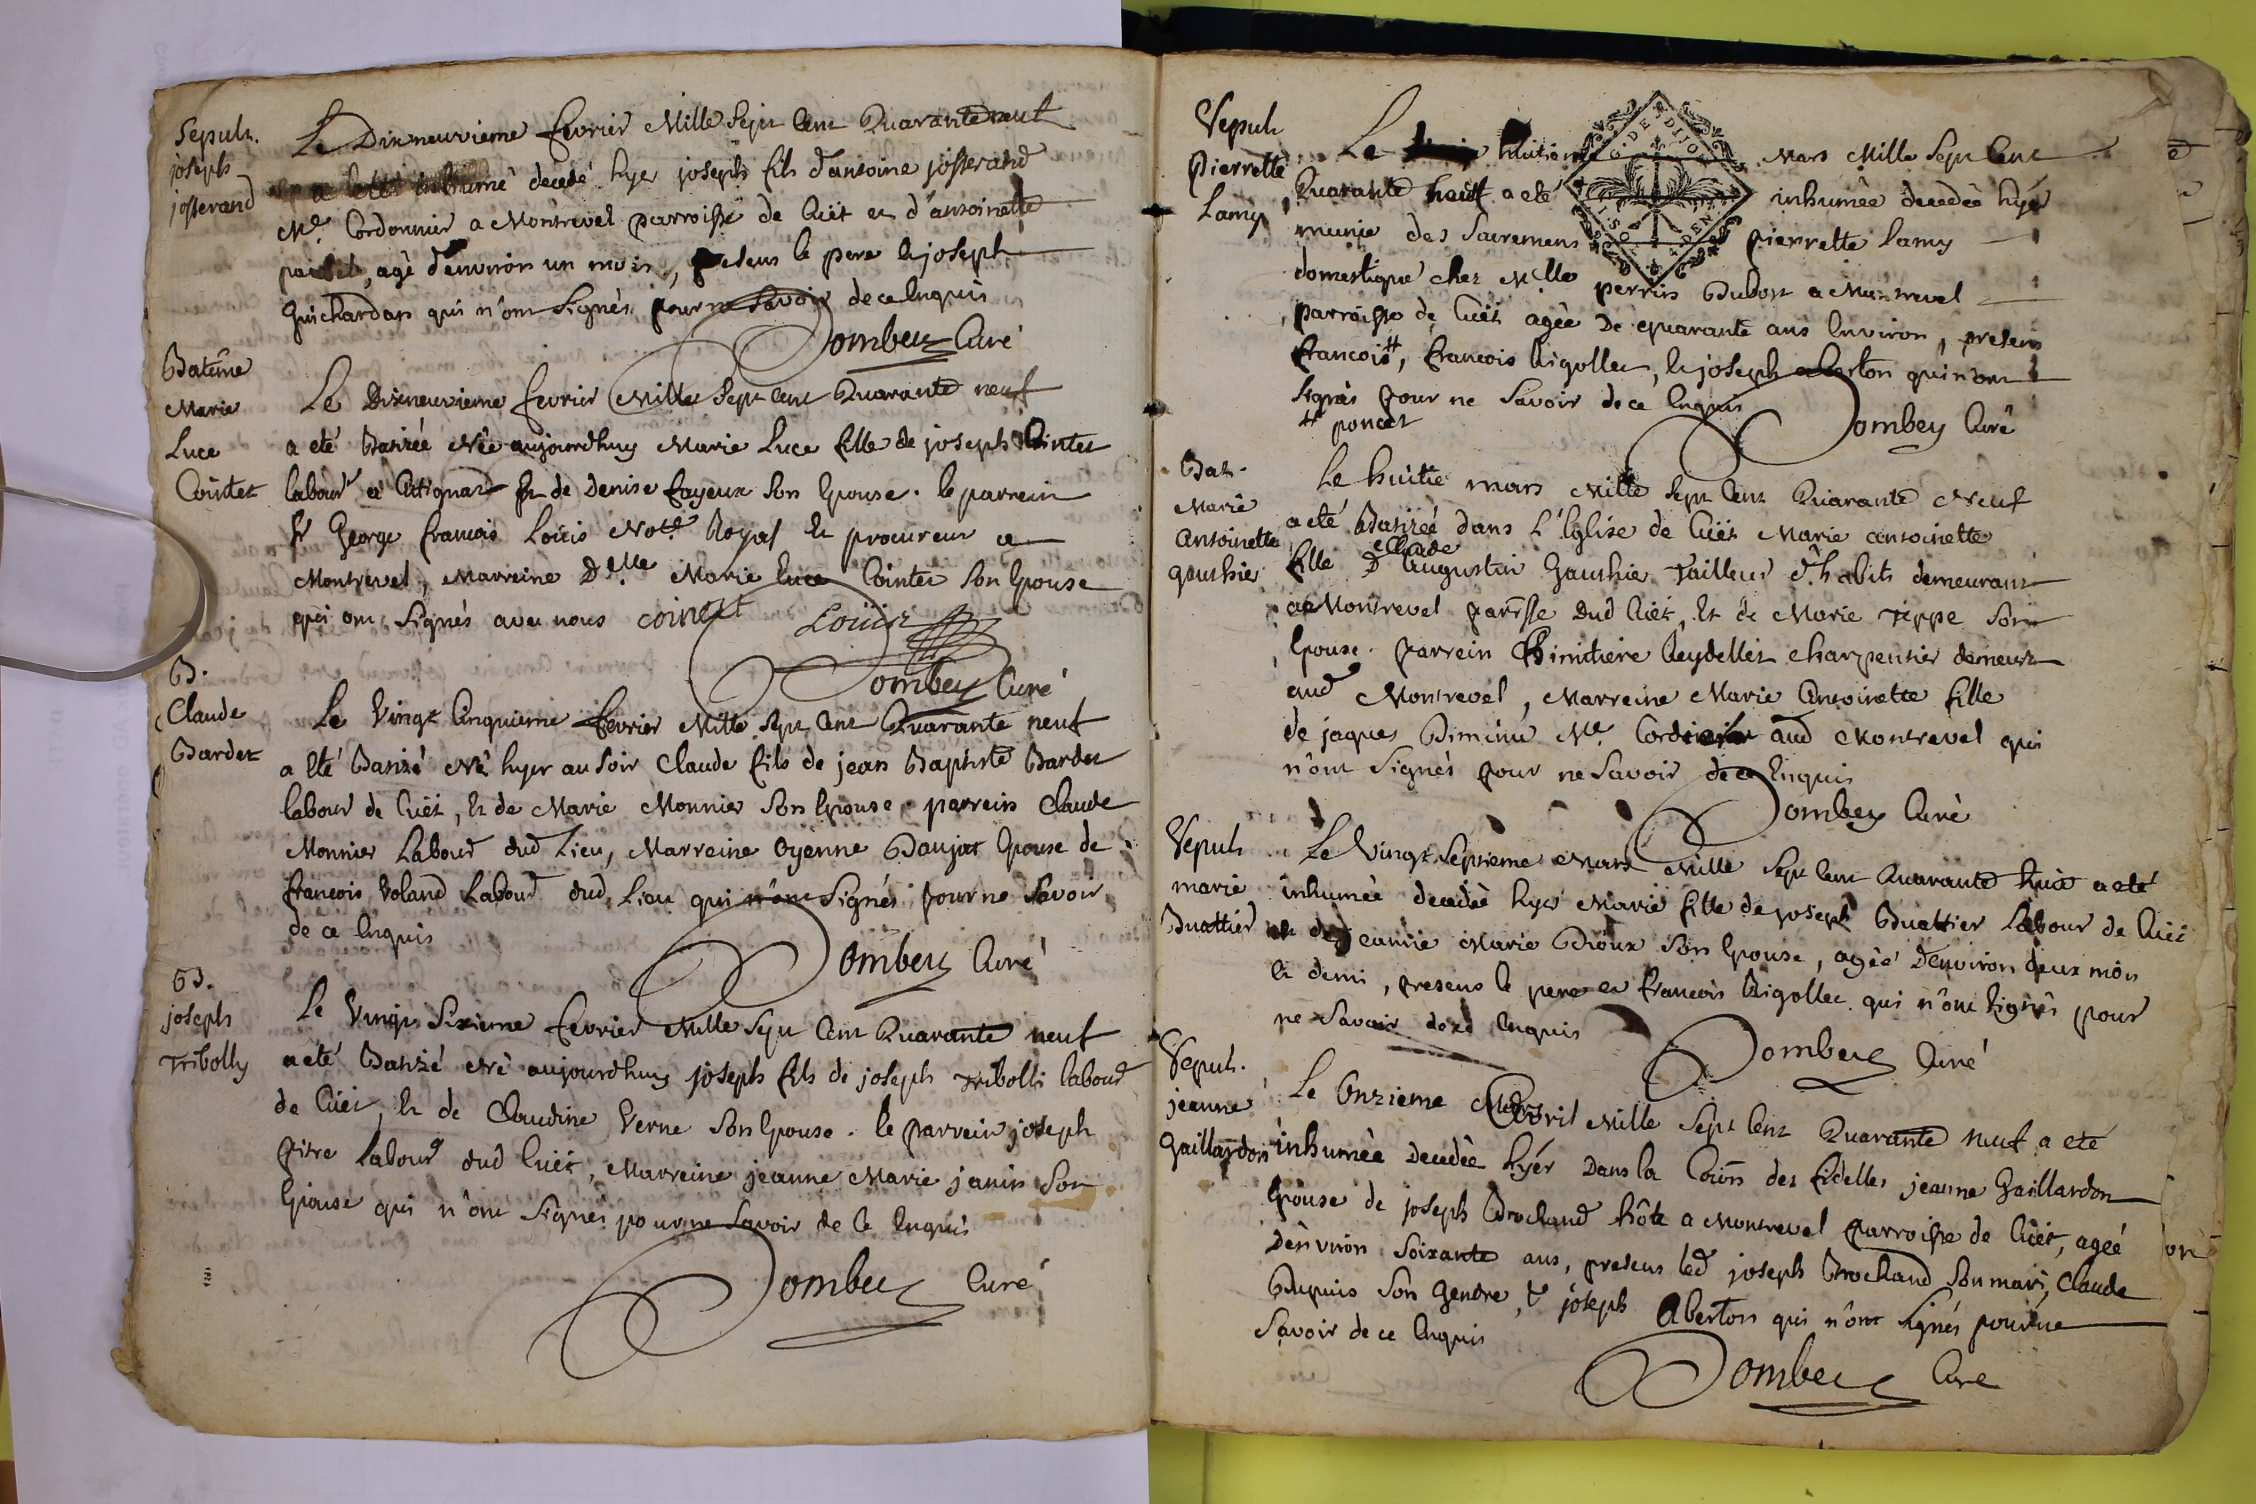 Sepult.
joseph
josserand
Le Dixneuvieme fevrier Mille Sept Cent Quarante neuf
a eté inhumé decedé hyer joseph fils d'antoine josserand
Me Cordonnier a Montrevel parroisse de Cüet et d'antoinette
agé d'environ un mois, presens le pere et joseph
Guichardan qui n'ont Signés pour ne Savoir de ce Enquis
Dombey Curé
Batême
Marie
Luce
Cointet
Le Dixneuvieme fevrier Mille Sept Cent Quarante neuf
a eté Batizée Née aujourdhuy Marie Luce fille de joseph Cointet
labour a et de Denise fayeux Son Epouse. le parrein
Sr George francois Loüis Notre Royal et procureur a
Montrevel, Marreine Delle Marie Luce Cointet Son Epouse
qui ont Signés avec nous cointet Loüis
Dombey Curé
B.
Claude
Bardet
Le Vingt Cinquieme fevrier Mille Sept Cent Quarante neuf
a Eté Batizé Né hyer au Soir Claude fils de jean Baptiste Bardet
labour de Cüet, Et de Marie Monnier Son Epouse. parrein Claude
Monnier Labour dud Lieu, Marreine Oyenne Baujat Epouse de
francois Voland Labour dud Lieu qui n'ont Signés pour ne Savoir
de ce Enquis
Dombey Curé
B.
joseph
Tribolly
Le Vingt Sixieme fevrier Mille Sept Cent Quarante neuf
a eté Batizé Né aujourdhuy joseph fils de joseph Tribolli labour
de Cüet, Et de Claudine Verne Son Epouse. le parrein joseph
pitre Labour dud Cüet, Marreine jeanne Marie janin Son
Epouse qui n'ont Signés pour ne Savoir de Ce Enquis
Dombey Curé
Sepult
Pierrette
Lamy
Le huitieme Mars Mille Sept Cent
Quarante neuf a eté inhumée decedée hyér
munie des Sacremens Pierrette Lamy
domestique chez Mlle perrin Dubost a Montrevel
parroisse de Cüet agée de quarante ans Environ, presens
francois #, francois Rigollet, et joseph aberton qui n'ont
Signés pour ne Savoir de ce Enquis
# poncet
Dombey Curé
G. DE DIJON
Bat.
Marie
Antoinette
gauthier
Le huitie mars Mille Sept Cent Quarante Neuf
a eté Batizeé dans L'Eglise de Cüet Marie antoinette
fille D Claude
Augustin Gauthie Tailleur d'habits demeurant
a Montrevel parisse Dud Cüet, Et de Marie Teppe Son
Epouse. Parrein Reydellet Charpentier demeurt
aud Montrevel, Marreine Marie Antoinette fille
de jaques Me Cordier aud Montrevel qui
n'ont Signés pour ne Savoir de ce Enquis
Dombey Curé
Sepult
marie
Buattier
Le Vingt Septieme Mars Mille Sept Cent Quarante huit a eté
inhumée decedée hyér Marie fille de joseph Buattier Labour de Cüet
et de Marie Son Epouse, agéé D'environ deux mois
et demi, presens le pere et francois Rigollet qui n'ont Signés pour
ne Savoir de ce Enquis
Dombey Curé
Sepult.
jeanne
Gaillardon
Le Onzieme Avril Mille Sept Cent Quarante neuf a eté
inhumée Decedée hyér Dans la Coïon des fidelles jeanne Gaillardon
Epouse de joseph Brochand hôte a Montrevel parroisse de Cüet, ageé
D'environ Soixante ans, presens led joseph Brochand Son mari, Claude
Dupuis Son Gendre, & joseph Aberton qui n'ont Signés pour ne
Savoir de ce Enquis
Dombey Curé